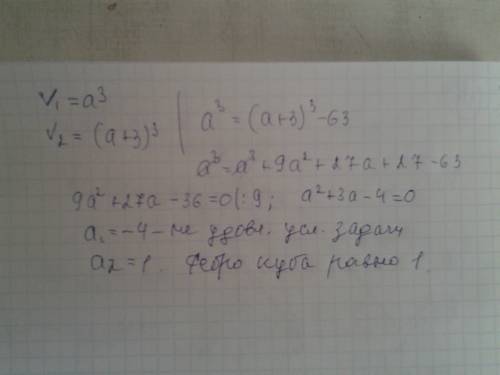 V₁ = a³
V₂ = (a+3)³
a³ = (a+3)³ - 63
a³ = a³ + 9a² + 27a + 27 - 63
9a² + 27a - 36 = 0 | : 9 ; a² + 3a - 4 = 0
a₁ = -4 - не удовл. усл. задачи
a2 = 1. Ребро куба равно 1.